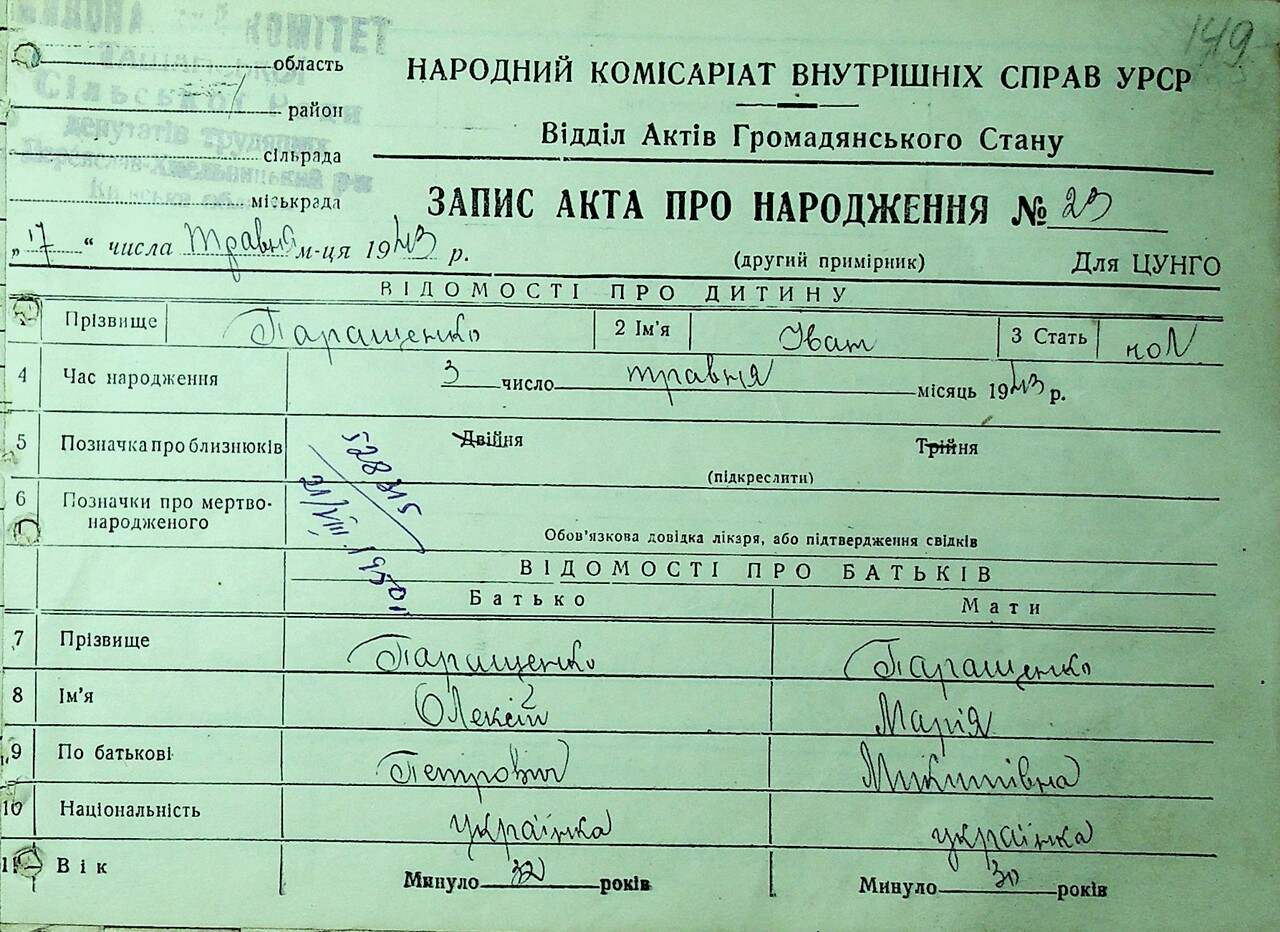 149
КОМІТЕТ
область
Сільської Ради
район
депутатів трудящих
сільрада
Переяслав-Хмельницький р-н
міськрада
НАРОДНИЙ КОМІСАРІАТ ВНУТРІШНІХ СПРАВ УРСР
Відділ Актів Громадянського Стану
ЗАПИС АКТА ПРО НАРОДЖЕННЯ № 23
„17“ числа травня м-ця 1943 р.
(другий примірник) Для ЦУНГО
ВІДОМОСТІ ПРО ДИТИНУ
Прізвище Паращенко 2 Ім'я Іван 3 Стать чол
4 Час народження 3 число травня місяць 1943 р.
5 Позначка про близнюків Двійня Трійня
(підкреслити)
528315
21/VIII.1950р
6 Позначки про мертво-
народженого
Обов'язкова довідка лікаря, або підтвердження свідків
ВІДОМОСТІ ПРО БАТЬКІВ
Батько Мати
7 Прізвище Паращенко Паращенко
8 Ім'я Олексій Марія
9 По батькові Петрович Микитівна
10 Національність українка українка
11 Вік Минуло 32 років Минуло 30 років